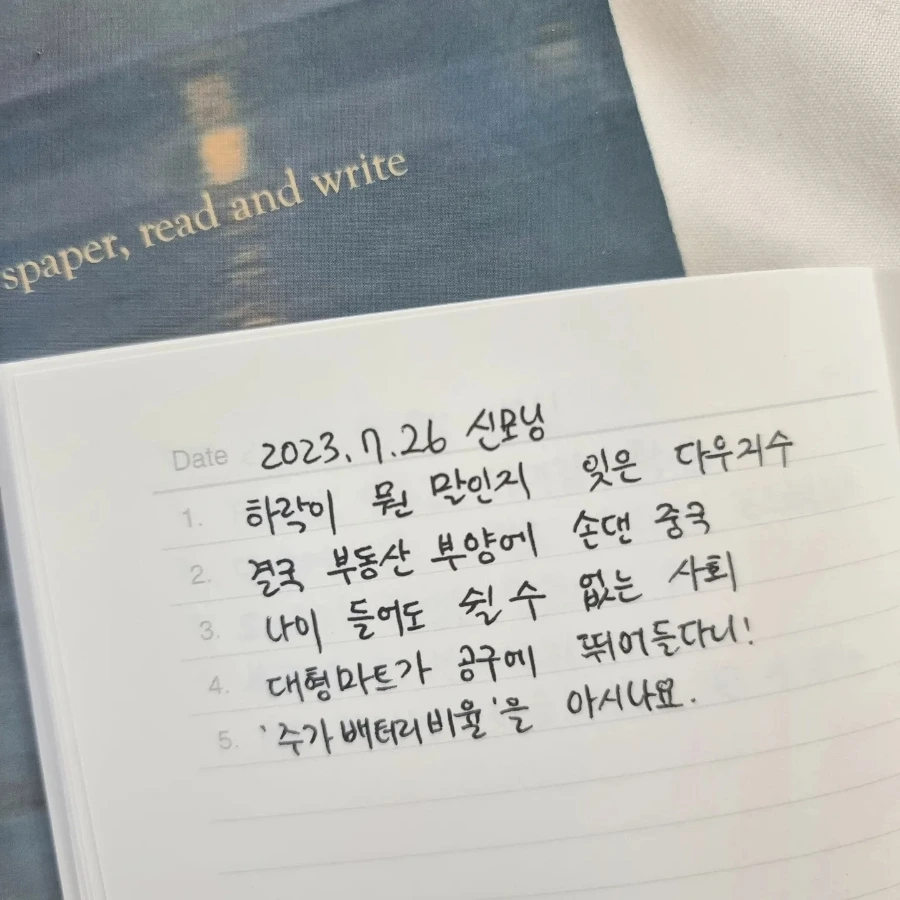 spaper, read and write
Date 2023.7.26 신모닝
1. 하락이 뭔 말인지 잊은 다우지수
2. 결국 부동산 부양에 손댄 중국
3. 나이 들어도 쉴 수 없는 사회
4. 대형마트가 공구에 뛰어들다니!
5. '주가배터리비율'을 아시나요.